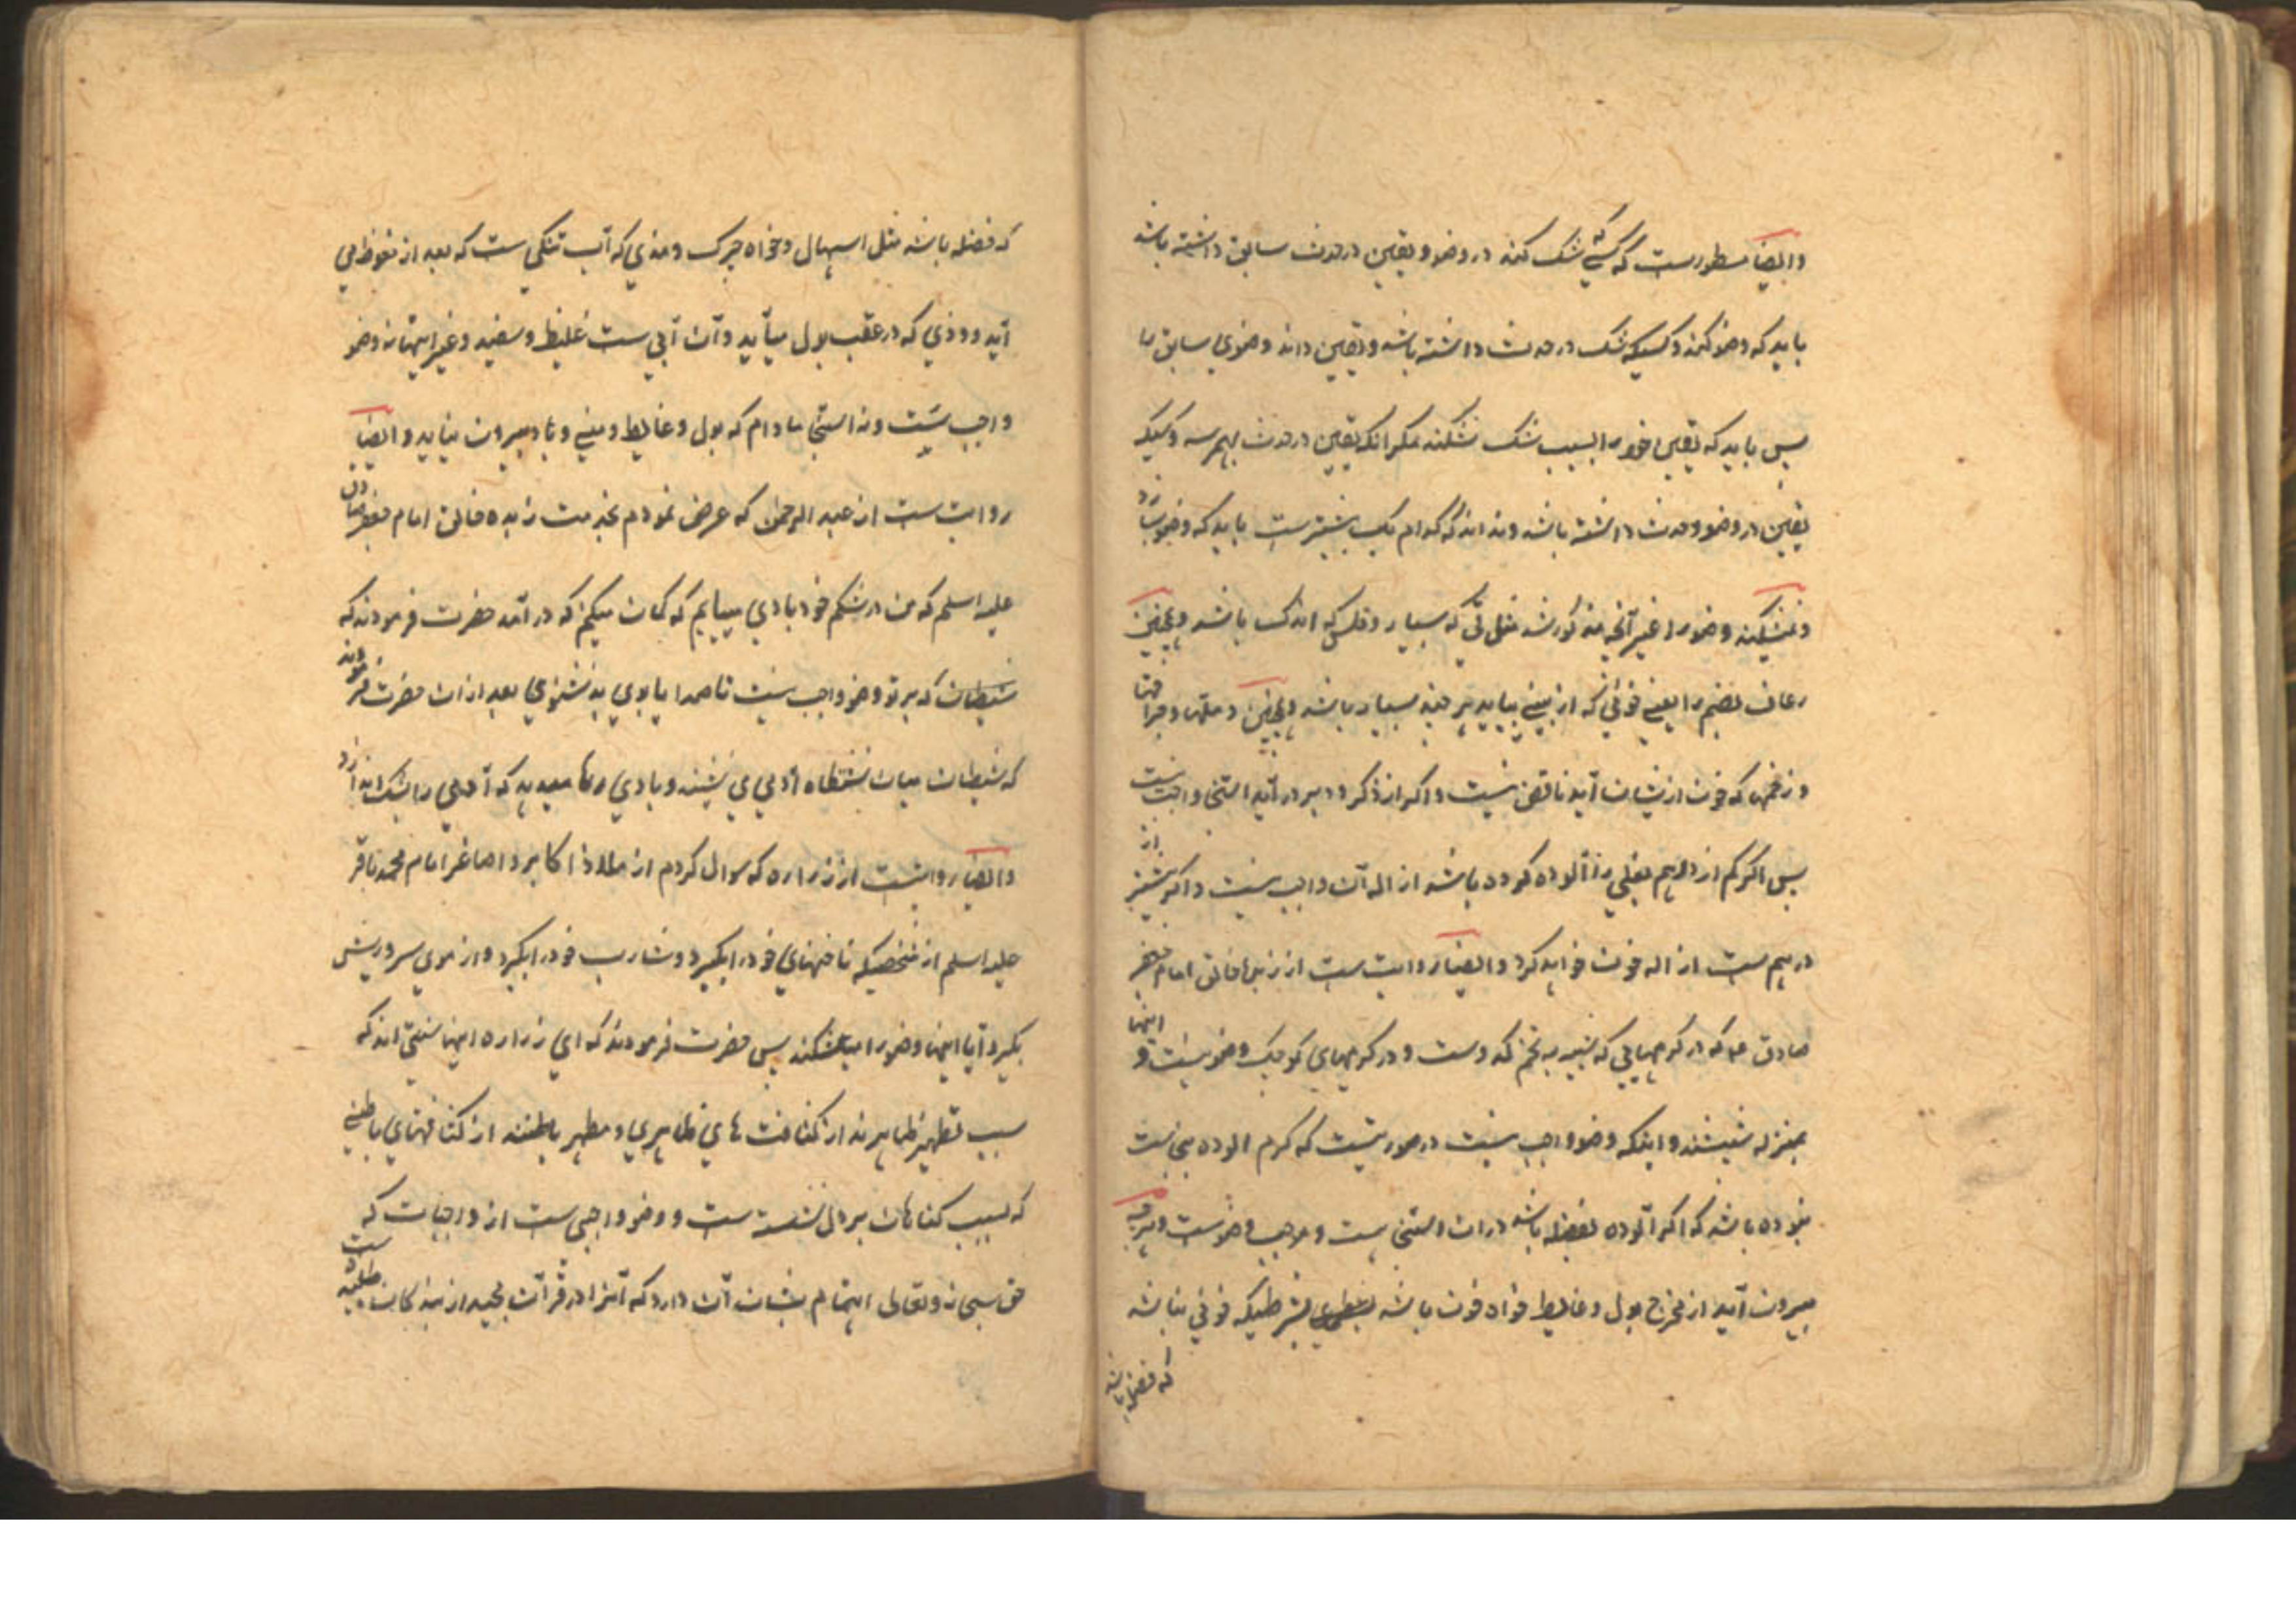 وایضاً مسطورست که کسی که شک کند در وضو و یقین در حدث سابق داشته باشد
باید که وضو کند و کسیکه شک در حدث داشته باشد و یقین داند وضوی سابق را
پس باید که یقین خود را بسبب شک نشکند مگر آنکه یقین در حدث بهم رسد و کسیکه
یقین در وضو و حدث داشته باشد و نداند که کدام یک پیشترست باید که وضو بسازد
و نمیشکند وضو را غیر آنچه مذکور شد مثل قی که بسیار و قلس که اندک باشد و همچنین
رعاف بضم را یعنی خونی که از بینی بیاید هر چند بسیار باشد و همچنین دملها و جراحتها
و زخمها که خون از ایشان آید ناقض نیست و اگر از ذکر و دبر در آید استنجا واجب نیست
پس اگر کم از درهم بغلی را آلوده کرده باشد ازاله آن واجب نیست و اگر بیشتر از
درهم ست ازاله خون خواهد کرد و ایضاً روایت ست از زبدهٔ خالق امام جعفر
صادق ع م که در کرمهایی که شبیه به تخم کدوست و در کرمهای کوچک وضو نیست و اینها
بمنزله شپشند و اینکه وضو واجب نیست در صورتیست که کرم آلوده بنجاست
نبوده باشد که اگر آلوده بفضله باشد در آن استنجا هست و موجب وضوست و هرچه
بیرون آید از مخرج بول و غایط خواه خون باشد بشرطیکه خونی نباشد
که فضله باشد
که فضله باشد مثل اسهال و خواه چرک و مذی که آب تنکی ست که بعد از نعوظ می
آید و وذی که در عقب بول میآید و آن آبی ست غلیظ و سفید و غیر اینها نه وضو
واجب نیست و نه استنجا مادام که بول و غایط و منی و باد بیرون نیاید و ایضاً
روایت ست از عبد الرحمن که عرض نمودم بخدمت زبدهٔ خالق امام جعفر صادق
علیه السلم که من در شکم خود بادی مییابم که گمان میکنم که در آمد حضرت فرمودند که
شیطان که بر تو وضو واجب نیست تا صدا یا بوی بد نشنوی بعد از آن حضرت فرمودند
که شیطان میان نشستگاه آدمی می نشیند و بادی رها میدهد که آدمی را بشک اندازد
وایضاً روایتست از زراره که سوال کردم از ملاذ اکابر و اصاغر امام محمد باقر
علیه السلم از شخصیکه ناخنهای خود را بگیرد و شارب خود را بگیرد و از موی سر و ریش
بگیرد آیا اینها وضو را میشکند پس حضرت فرمودند که ای زراره اینها سنتی اند که
سبب تطهیر ظاهرند از کثافت های ظاهری و مطهر باطنند از کثافتهای باطنی
که بسبب گناهان بر دل نشسته ست و وضو واجبی ست از واجبات که
حق سبحانه و تعالی اهتمام بشان آن دارد که آنرا در قرآن مجید از بندگان طلبیده ست